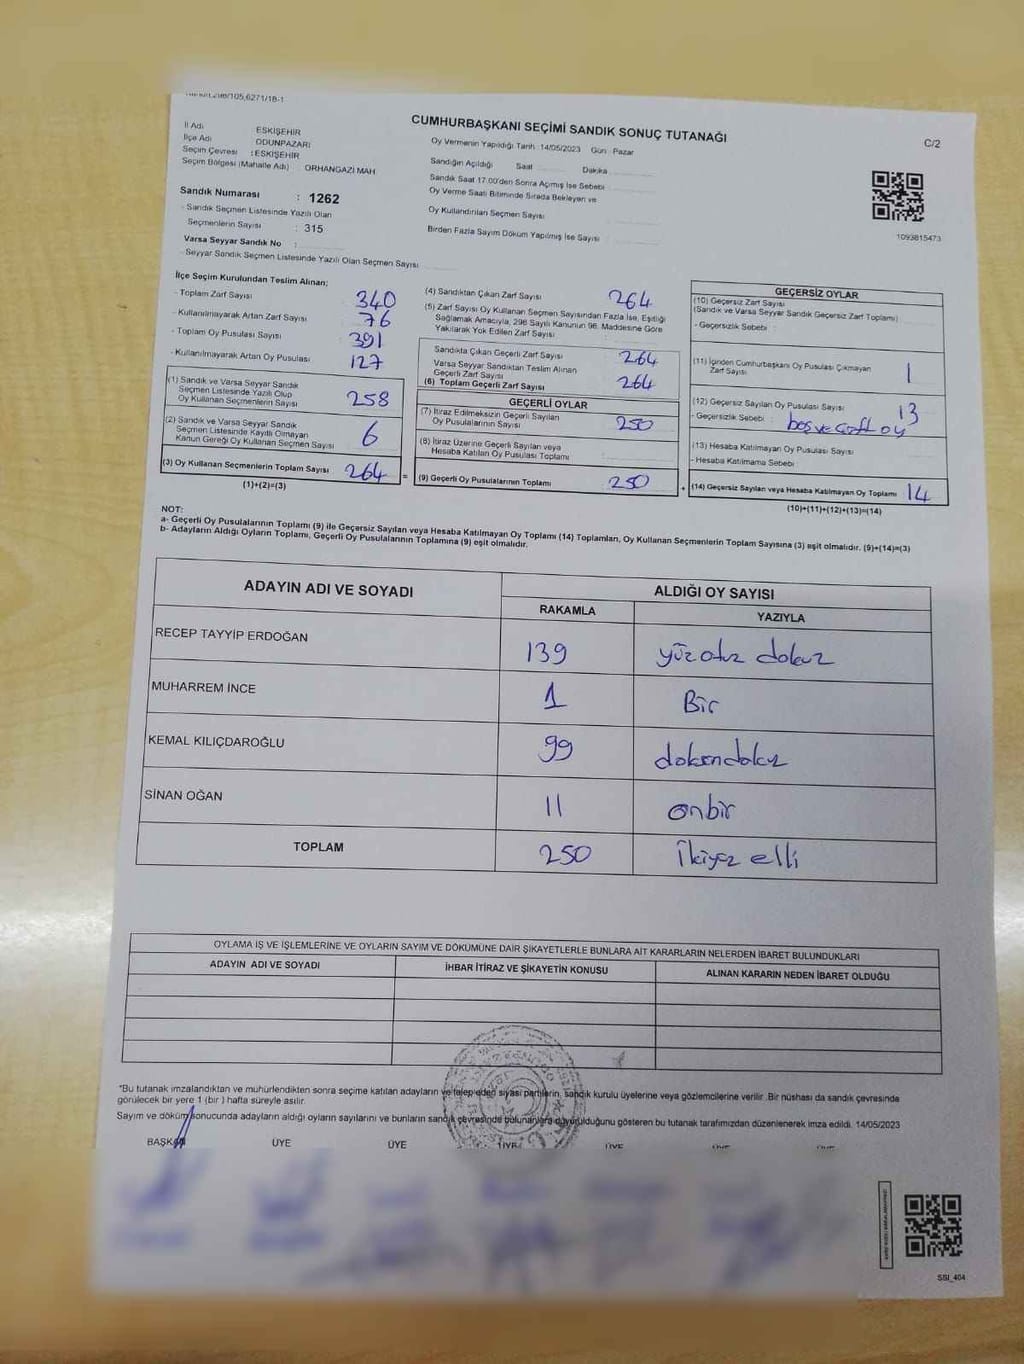 CUMHURBAŞKANI SEÇİMİ SANDIK SONUÇ TUTANAĞI
C/2
İl Adı ESKİŞEHİR
İlçe Adı ODUNPAZARI
Seçim Çevresi : ESKİŞEHİR
Seçim Bölgesi (Mahalle Adı) : ORHANGAZİ MAH
Oy Vermenin Yapıldığı Tarih :14/05/2023 Gün : Pazar
Sandığın Açıldığı Saat Dakika
Sandık Saat 17.00'den Sonra Açılmış İse Sebebi
Oy Verme Saati Bitiminde Sırada Bekleyen ve
Oy Kullandırılan Seçmen Sayısı
Birden Fazla Sayım Döküm Yapılmış İse Sayısı :
1093815473
Sandık Numarası : 1262
- Sandık Seçmen Listesinde Yazılı Olan
Seçmenlerin Sayısı : 315
Varsa Seyyar Sandık No :
- Seyyar Sandık Seçmen Listesinde Yazılı Olan Seçmen Sayısı
İlçe Seçim Kurulundan Teslim Alınan;
- Toplam Zarf Sayısı 340
- Kullanılmayarak Artan Zarf Sayısı 76
- Toplam Oy Pusulası Sayısı 391
- Kullanılmayarak Artan Oy Pusulası 127
(1) Sandık ve Varsa Seyyar Sandık
Seçmen Listesinde Yazılı Olup
Oy Kullanan Seçmenlerin Sayısı 258
(2) Sandık ve Varsa Seyyar Sandık
Seçmen Listesinde Kayıtlı Olmayan
Kanun Gereği Oy Kullanan Seçmen Sayısı 6
(3) Oy Kullanan Seçmenlerin Toplam Sayısı 264
(1)+(2)=(3)
(4) Sandıktan Çıkan Zarf Sayısı 264
(5) Zarf Sayısı Oy Kullanan Seçmen Sayısından Fazla İse, Eşitliği
Sağlamak Amacıyla, 298 Sayılı Kanunun 98. Maddesine Göre
Yakılarak Yok Edilen Zarf Sayısı
Sandıkta Çıkan Geçerli Zarf Sayısı 264
Varsa Seyyar Sandıktan Teslim Alınan
Geçerli Zarf Sayısı
(6) Toplam Geçerli Zarf Sayısı 264
GEÇERLİ OYLAR
(7) İtiraz Edilmeksizin Geçerli Sayılan
Oy Pusulalarının Sayısı 250
(8) İtiraz Üzerine Geçerli Sayılan veya
Hesaba Katılan Oy Pusulası Toplamı
= (9) Geçerli Oy Pusulalarının Toplamı 250
GEÇERSİZ OYLAR
(10) Geçersiz Zarf Sayısı
(Sandık ve Varsa Seyyar Sandık Geçersiz Zarf Toplamı)
- Geçersizlik Sebebi
(11) İçinden Cumhurbaşkanı Oy Pusulası Çıkmayan
Zarf Sayısı 1
(12) Geçersiz Sayılan Oy Pusulası Sayısı 13
- Geçersizlik Sebebi : boş ve çift oy
(13) Hesaba Katılmayan Oy Pusulası Sayısı
- Hesaba Katılmama Sebebi
+ (14) Geçersiz Sayılan veya Hesaba Katılmayan Oy Toplamı 14
(10)+(11)+(12)+(13)=(14)
NOT:
a- Geçerli Oy Pusulalarının Toplamı (9) ile Geçersiz Sayılan veya Hesaba Katılmayan Oy Toplamı (14) Toplamları, Oy Kullanan Seçmenlerin Toplam Sayısına (3) eşit olmalıdır. (9)+(14)=(3)
b- Adayların Aldığı Oyların Toplamı, Geçerli Oy Pusulalarının Toplamına (9) eşit olmalıdır.
ADAYIN ADI VE SOYADI ALDIĞI OY SAYISI
RAKAMLA YAZIYLA
RECEP TAYYİP ERDOĞAN 139 yüzotuz dokuz
MUHARREM İNCE 1 Bir
KEMAL KILIÇDAROĞLU 99 doksandokuz
SİNAN OĞAN 11 onbir
TOPLAM 250 İkiyüz elli
OYLAMA İŞ VE İŞLEMLERİNE VE OYLARIN SAYIM VE DÖKÜMÜNE DAİR ŞİKAYETLERLE BUNLARA AİT KARARLARIN NELERDEN İBARET BULUNDUKLARI
ADAYIN ADI VE SOYADI İHBAR İTİRAZ VE ŞİKAYETİN KONUSU ALINAN KARARIN NEDEN İBARET OLDUĞU
*Bu tutanak imzalandıktan ve mühürlendikten sonra seçime katılan adayların ve talep eden siyasi partilerin, sandık kurulu üyelerine veya gözlemcilerine verilir. Bir nüshası da sandık çevresinde
görülecek bir yere 1 (bir ) hafta süreyle asılır.
Sayım ve döküm sonucunda adayların aldığı oyların sayılarını ve bunların sandık çevresinde bulunanlara duyurulduğunu gösteren bu tutanak tarafımızdan düzenlenerek imza edildi. 14/05/2023
BAŞKAN ÜYE ÜYE ÜYE ÜYE
SSI_404